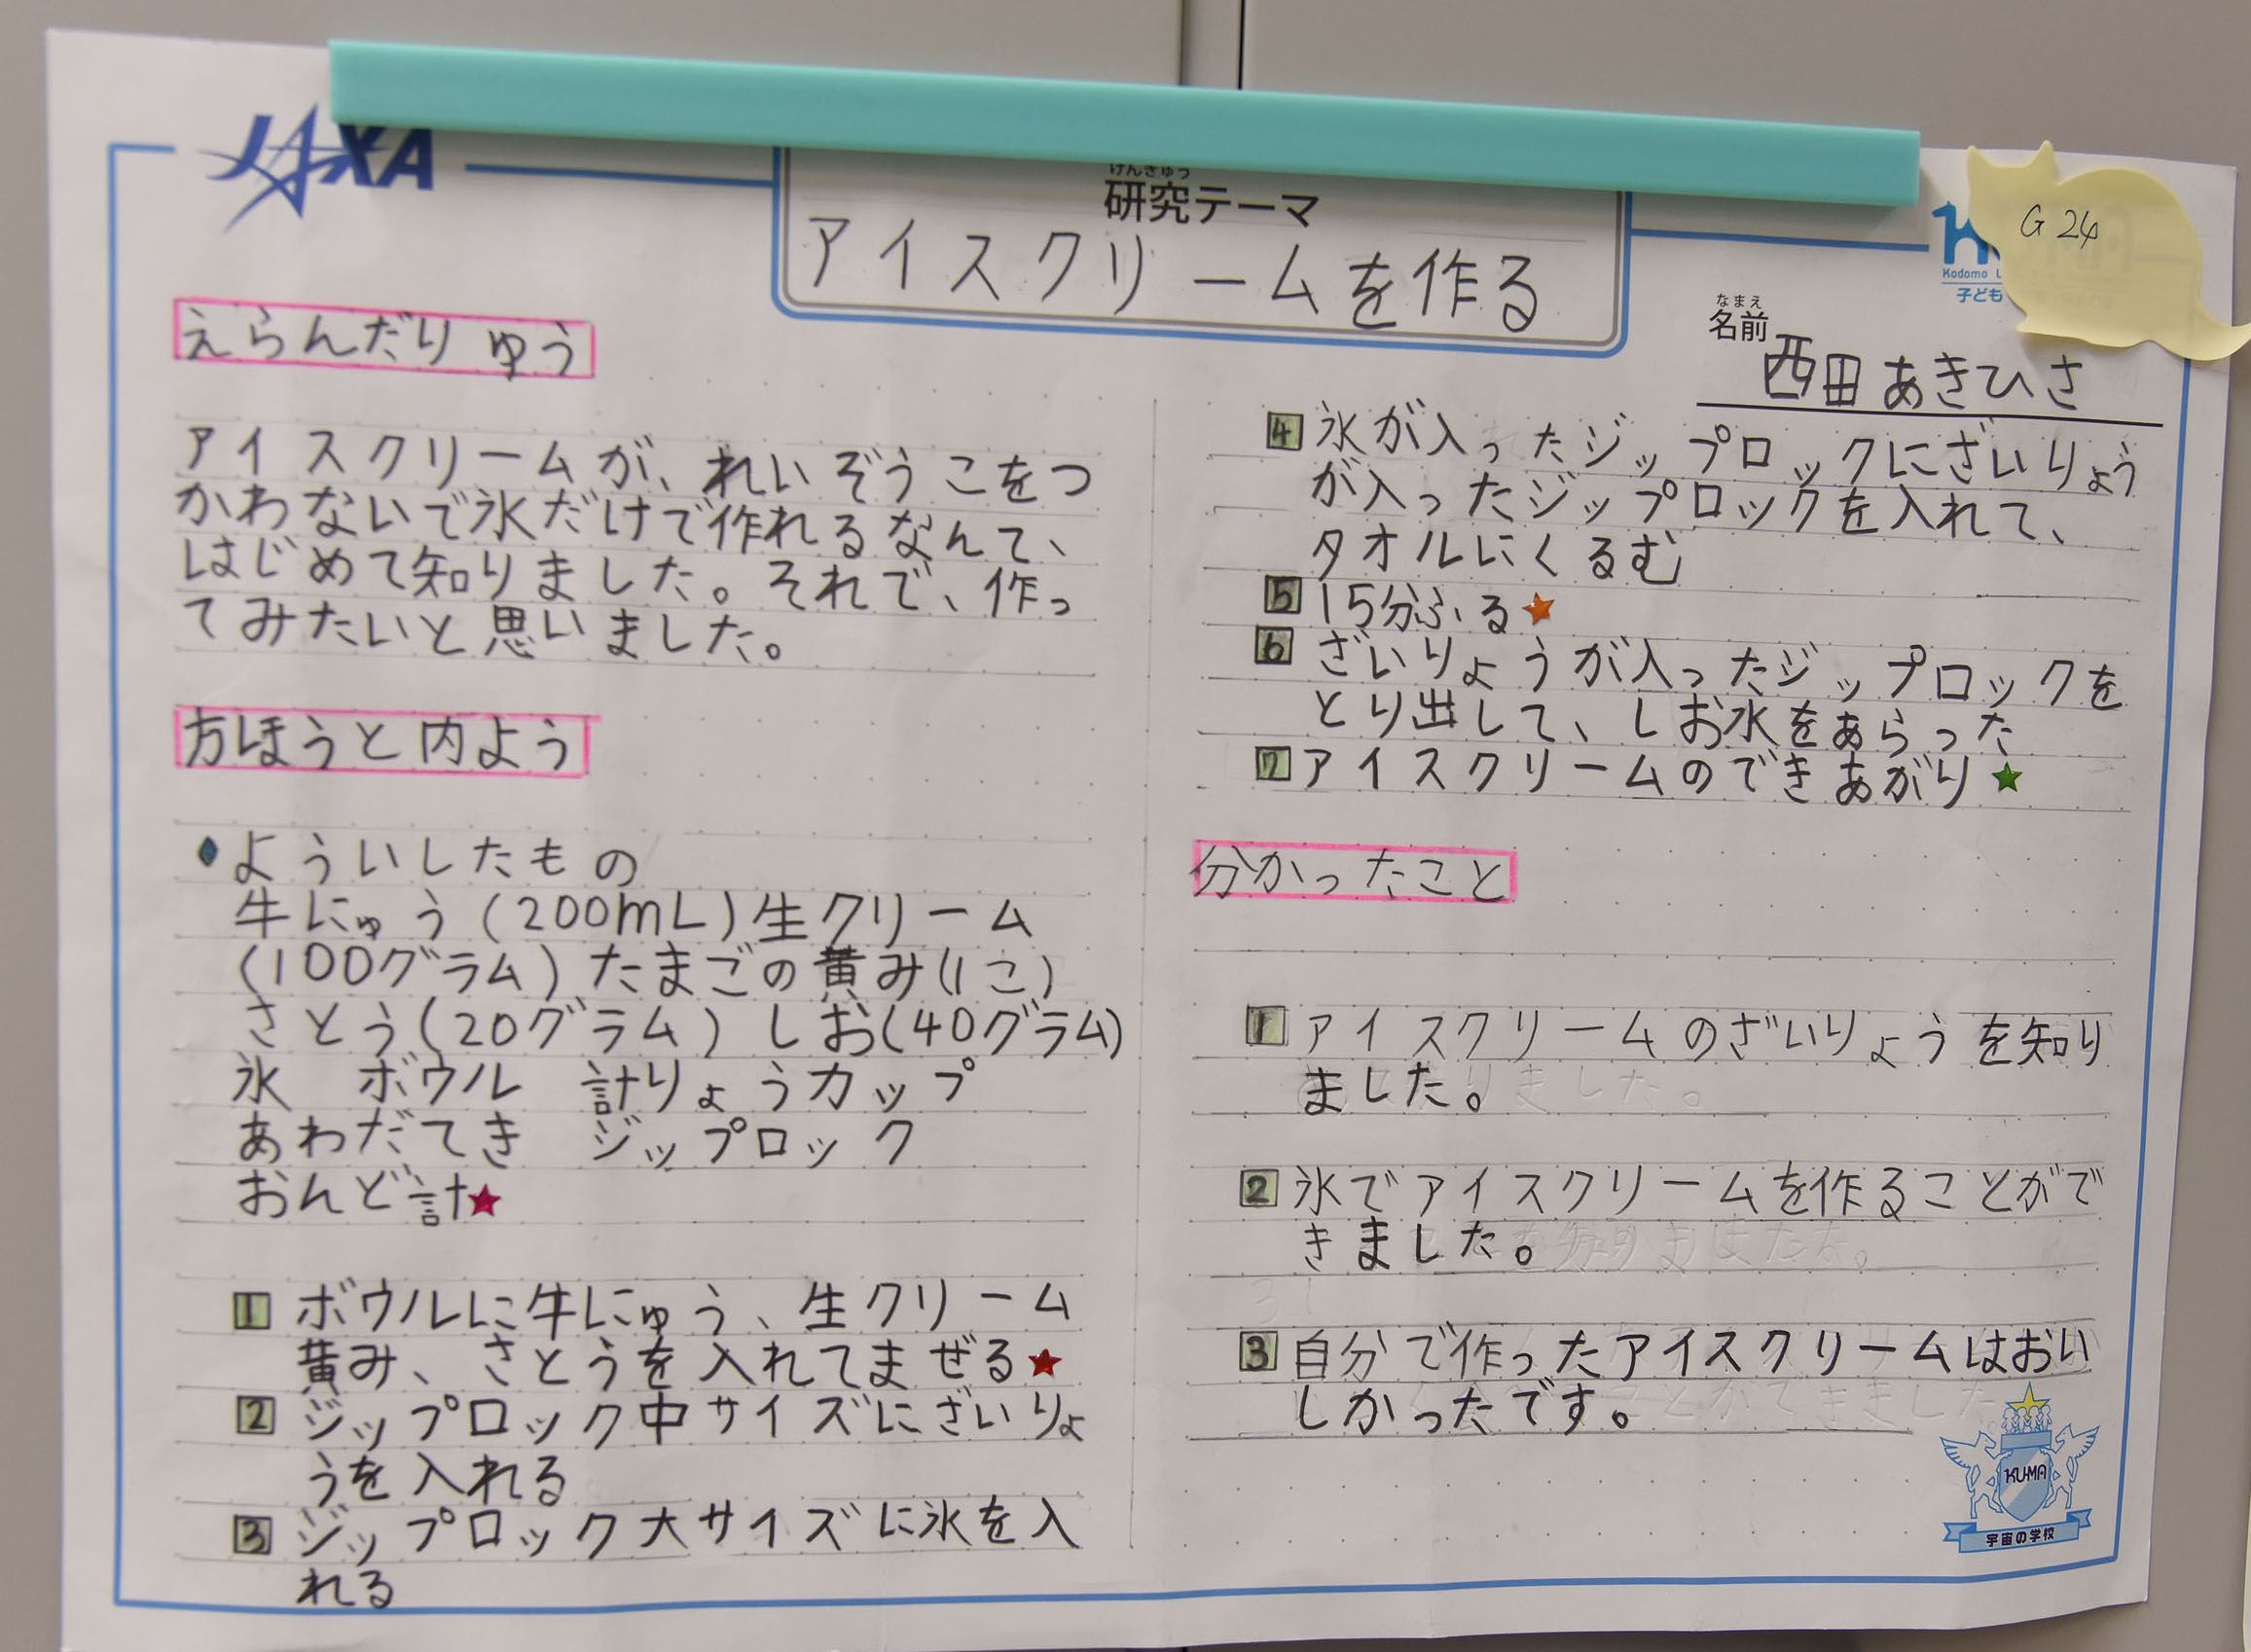 JAXA
けんきゅう
研究テーマ
アイスクリームを作る
G 24
Kodomo
子ども
なまえ
名前
西田あきひさ
えらんだりゆう
アイスクリームが、れいぞうこをつ
かわないで氷だけで作れるなんて、
はじめて知りました。それで、作っ
てみたいと思いました。
方ほうと内よう
よういしたもの
牛にゅう(200mL)生クリーム
(100グラム)たまごの黄み(1こ)
さとう(20グラム) しお(40グラム)
氷 ボウル 計りょうカップ
あわだてき ジップロック
おんど計★
1 ボウルに牛にゅう、生クリーム
黄み、さとうを入れてまぜる★
2 ジップロック中サイズにざいりょ
うを入れる
3 ジップロック大サイズに氷を入
れる
4 氷が入ったジップロックにざいりょう
が入ったジップロックを入れて、
タオルにくるむ
5 15分ふる★
6 ざいりょうが入ったジップロックを
とり出して、しお水をあらった
7 アイスクリームのできあがり★
分かったこと
1 アイスクリームのざいりょうを知り
ました。
2 氷でアイスクリームを作ることがで
きました。
3 自分で作ったアイスクリームはおい
しかったです。
KUMA
宇宙の学校